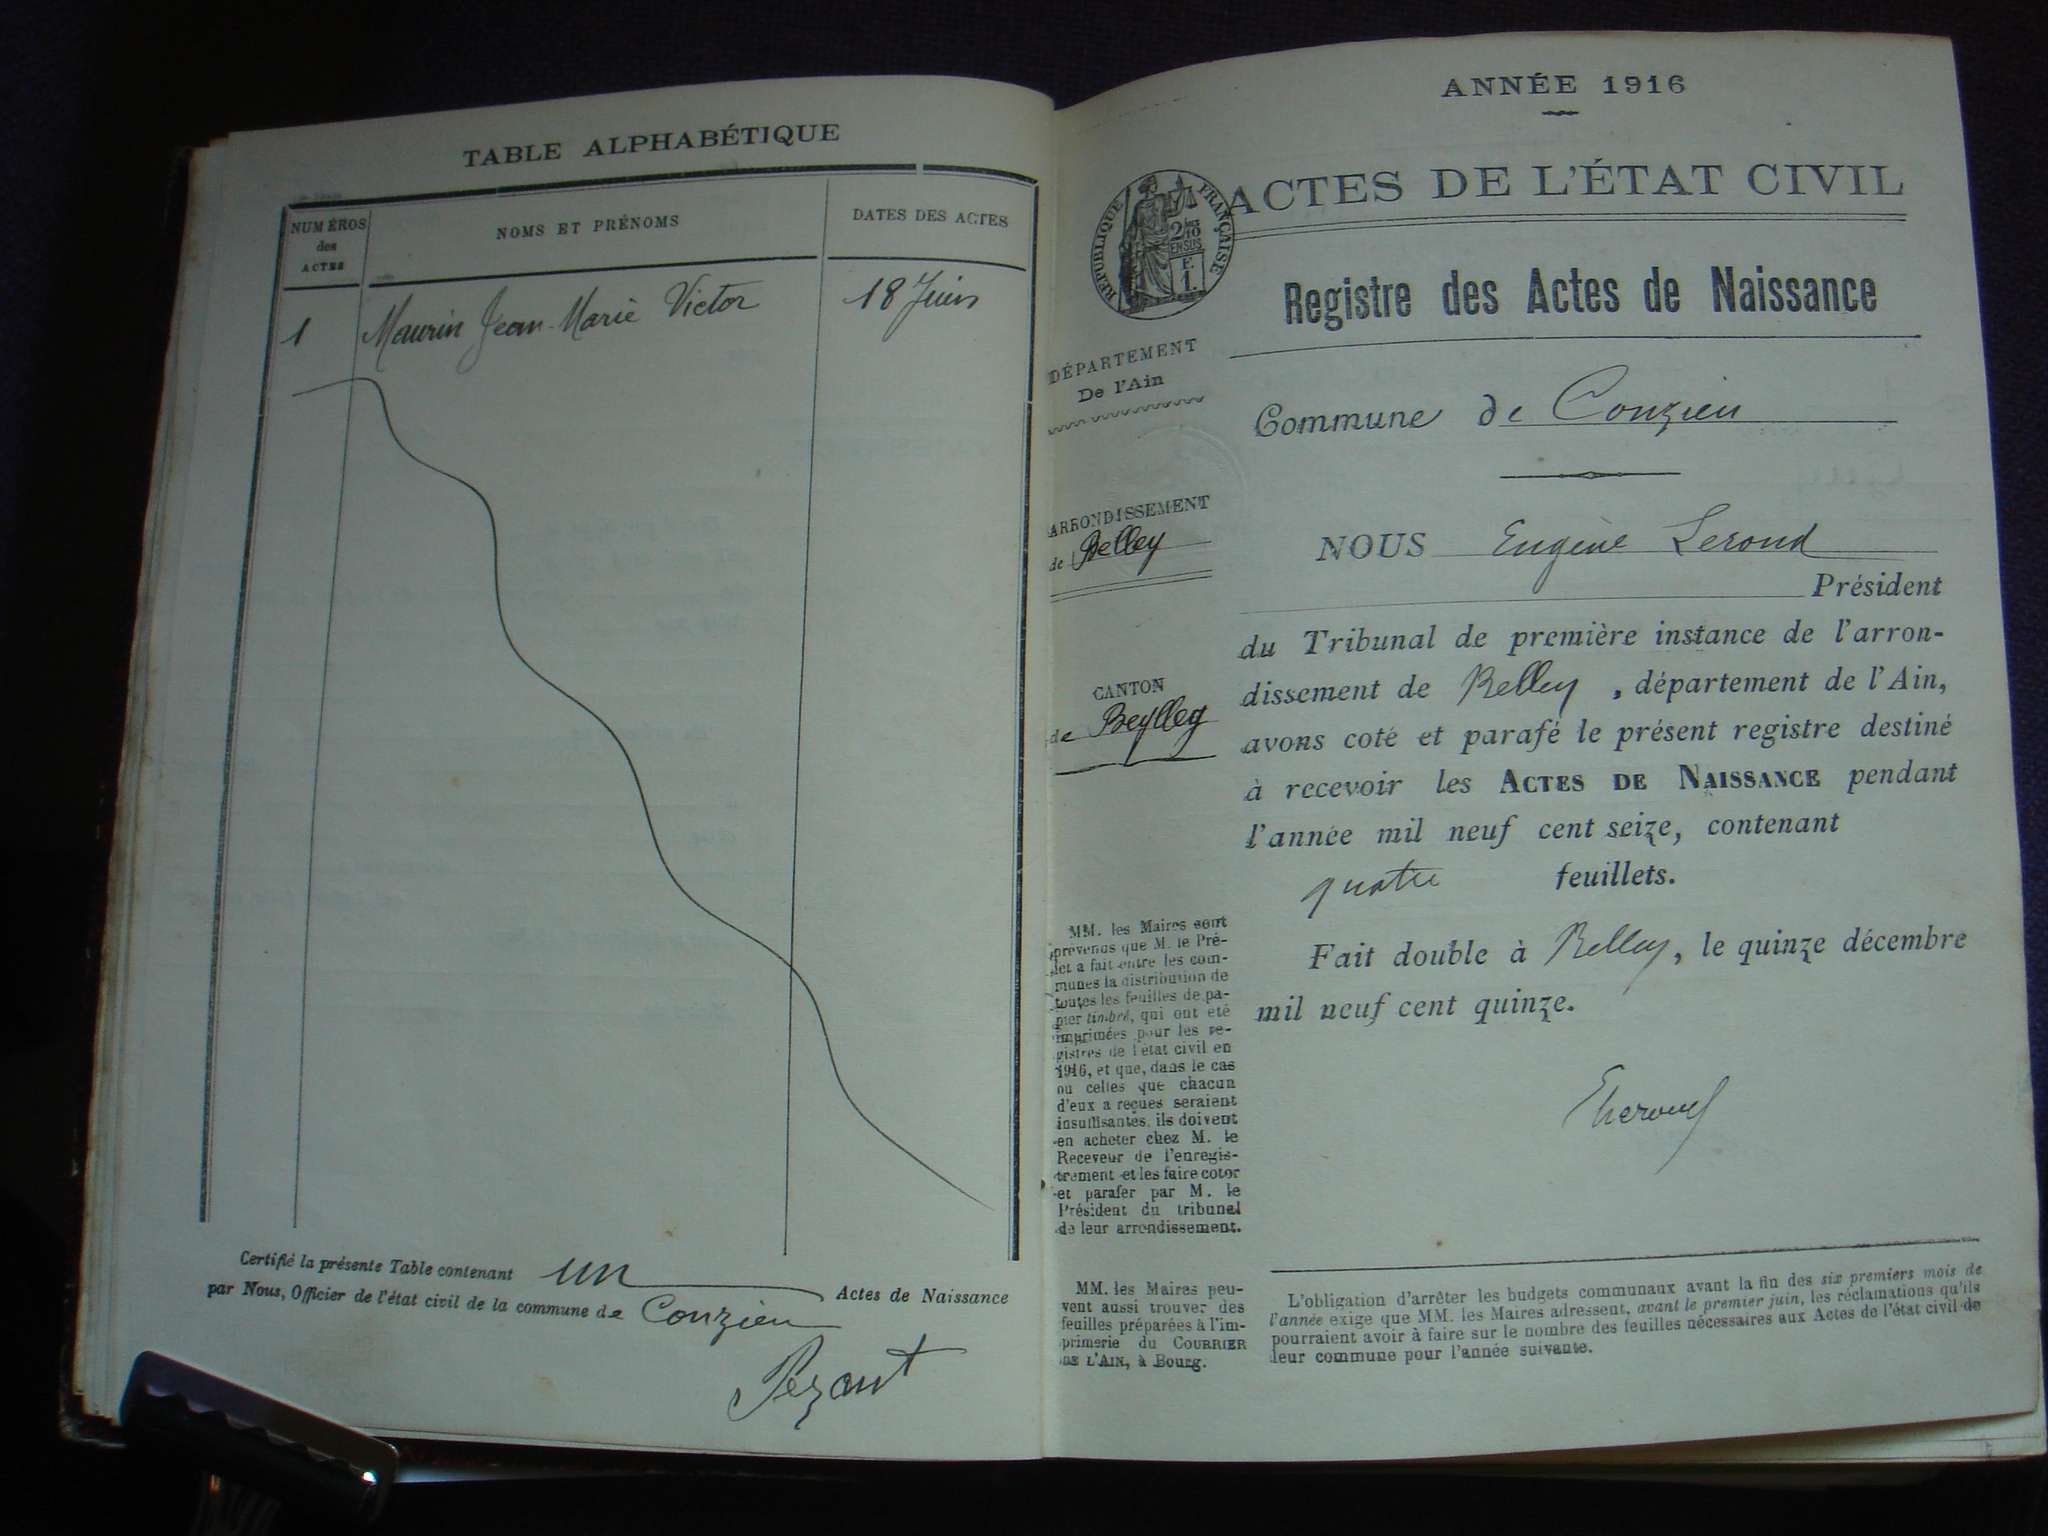 TABLE ALPHABÉTIQUE
NUMÉROS
des
ACTES
NOMS ET PRÉNOMS
DATES DES ACTES
1
Maurin Jean-Marie Victor
18 Juin
Certifié la présente Table contenant un Actes de Naissance
par Nous, Officier de l'état civil de la commune de Conzieu
Pezant
ANNÉE 1916
ACTES DE L'ÉTAT CIVIL
RÉPUBLIQUE FRANÇAISE
2/10
EN SUS
F.
1.
Registre des Actes de Naissance
DÉPARTEMENT
De l'Ain
Commune de Conzieu
ARRONDISSEMENT
de Belley
NOUS Eugène Lerond
Président
du Tribunal de première instance de l'arron-
dissement de Belley, département de l'Ain,
CANTON
de Beylley
avons coté et parafé le présent registre destiné
à recevoir les ACTES DE NAISSANCE pendant
l'année mil neuf cent seize, contenant
quatre feuillets.
Fait double à Belley, le quinze décembre
mil neuf cent quinze.
MM. les Maires sont
prévenus que M. le Pré-
fet a fait entre les com-
munes la distribution de
toutes les feuilles de pa-
pier timbré, qui ont été
imprimées pour les re-
gistres de l'état civil en
1916, et que, dans le cas
ou celles que chacun
d'eux a reçues seraient
insuffisantes, ils doivent
en acheter chez M. le
Receveur de l'enregis-
trement et les faire coter
et parafer par M. le
Président du tribunal
de leur arrondissement.
MM. les Maires peu-
vent aussi trouver des
feuilles préparées à l'im-
primerie du COURRIER
DE L'AIN, à Bourg.
L'obligation d'arrêter les budgets communaux avant la fin des six premiers mois de
l'année exige que MM. les Maires adressent, avant le premier juin, les réclamations qu'ils
pourraient avoir à faire sur le nombre des feuilles nécessaires aux Actes de l'état civil de
leur commune pour l'année suivante.